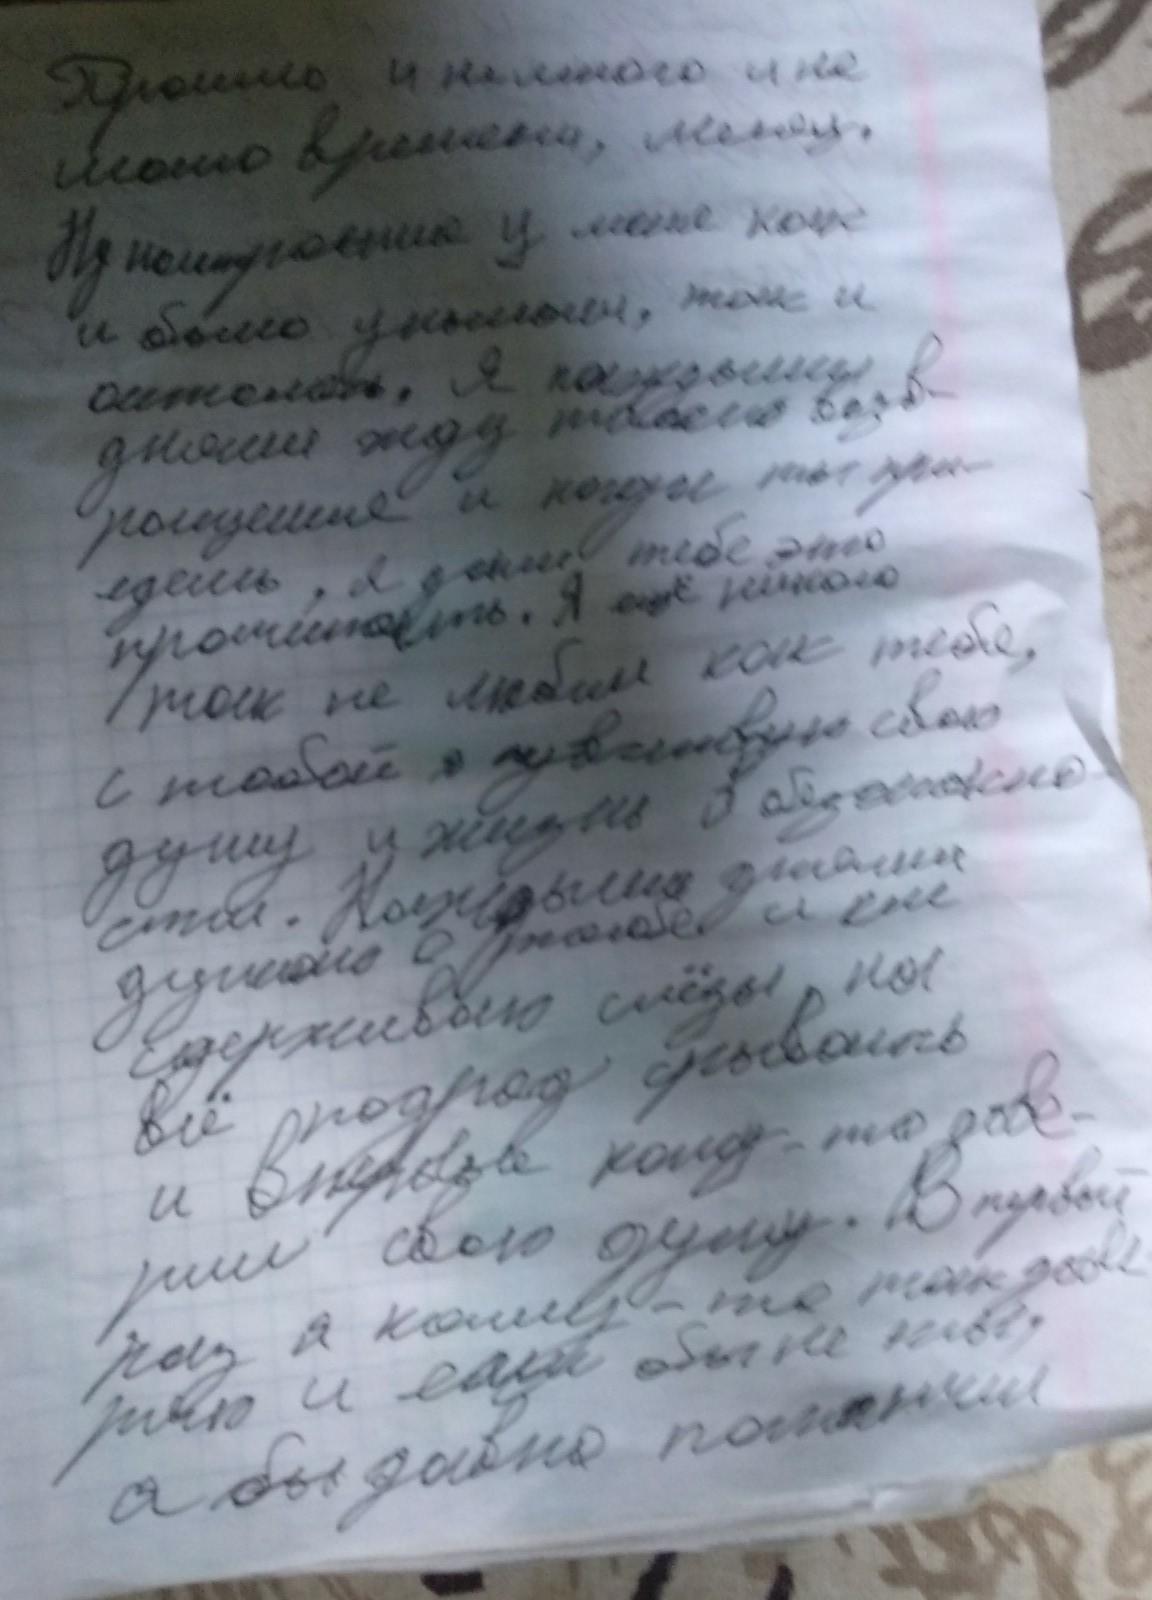 Прошло и немного и не
мало времени, месяц.
Но настроение у меня как
и было унылым, так и
осталось. Я каждыми
днями жду твоего возв-
ращения и когда ты при-
едешь, я дам тебе это
прочитать. Я ещё никого
так не любил как тебя,
с тобой я чувствую свою
душу и жизнь в безопасно-
сти. Каждыми днями
думаю о тебе и еле
сдерживаю слёзы, на
всё подряд
и впервые кому-то дове-
рил свою душу. В первый
раз я кому-то так дове-
ряю и если бы не ты,
я бы давно покончил